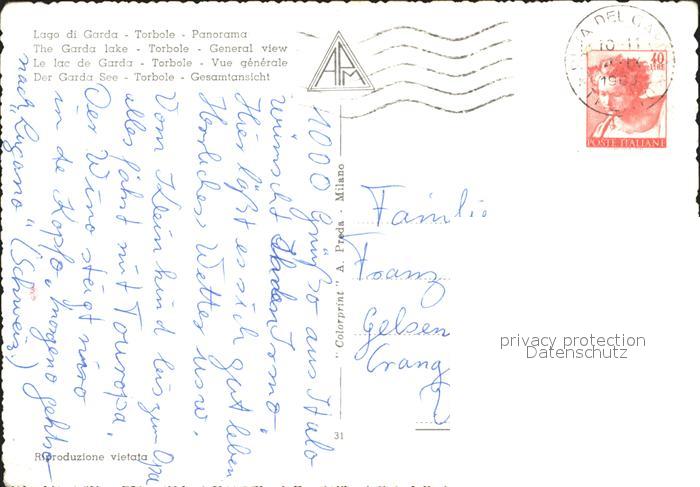 Lago di Garda - Torbole - Panorama
The Garda lake - Torbole - General view
Le lac de Garda - Torbole - Vue générale
Der Garda See - Torbole - Gesamtansicht
APM
10-11
196
40
LIRE
POSTE ITALIANE
1000 Grüße aus Italo
wünscht Irmo
Hier läßt es sich gut leben
Herrliches Wetter usw.
Vom Kleinkind bis zum Opa
alles fährt mit Touropa,
Der Wino steigt
in de Kopfo, morgeno gehtso
nach "Lugano" (Schweiz.)
"Colorprint" A. Preda - Milano
31
Familie
Franz
Gelsen
Crang
privacy protection
Datenschutz
Riproduzione vietata